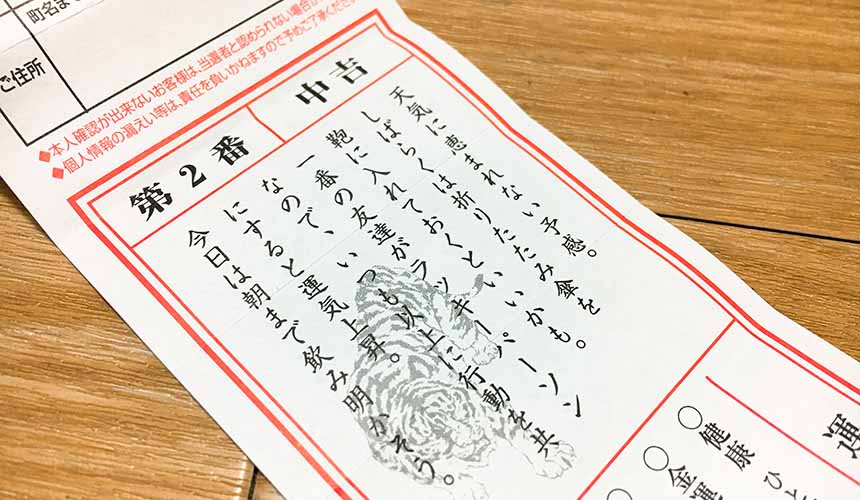 町名まで
ご住所
◆本人確認が出来ないお客様は、当選者と認められない場合が
◆個人情報の漏えい等は、責任を負いかねますので予めご了承くださ
中吉
第2番
天気に恵まれない予感。
しばらくは折りたたみ傘を
鞄に入れておくといいかも。
一番の友達がラッキーパーソン
なので、いつも以上に行動を共
にすると運気上昇。
今日は朝まで飲み明かそう。
運
○健康 ひと
○金運
○